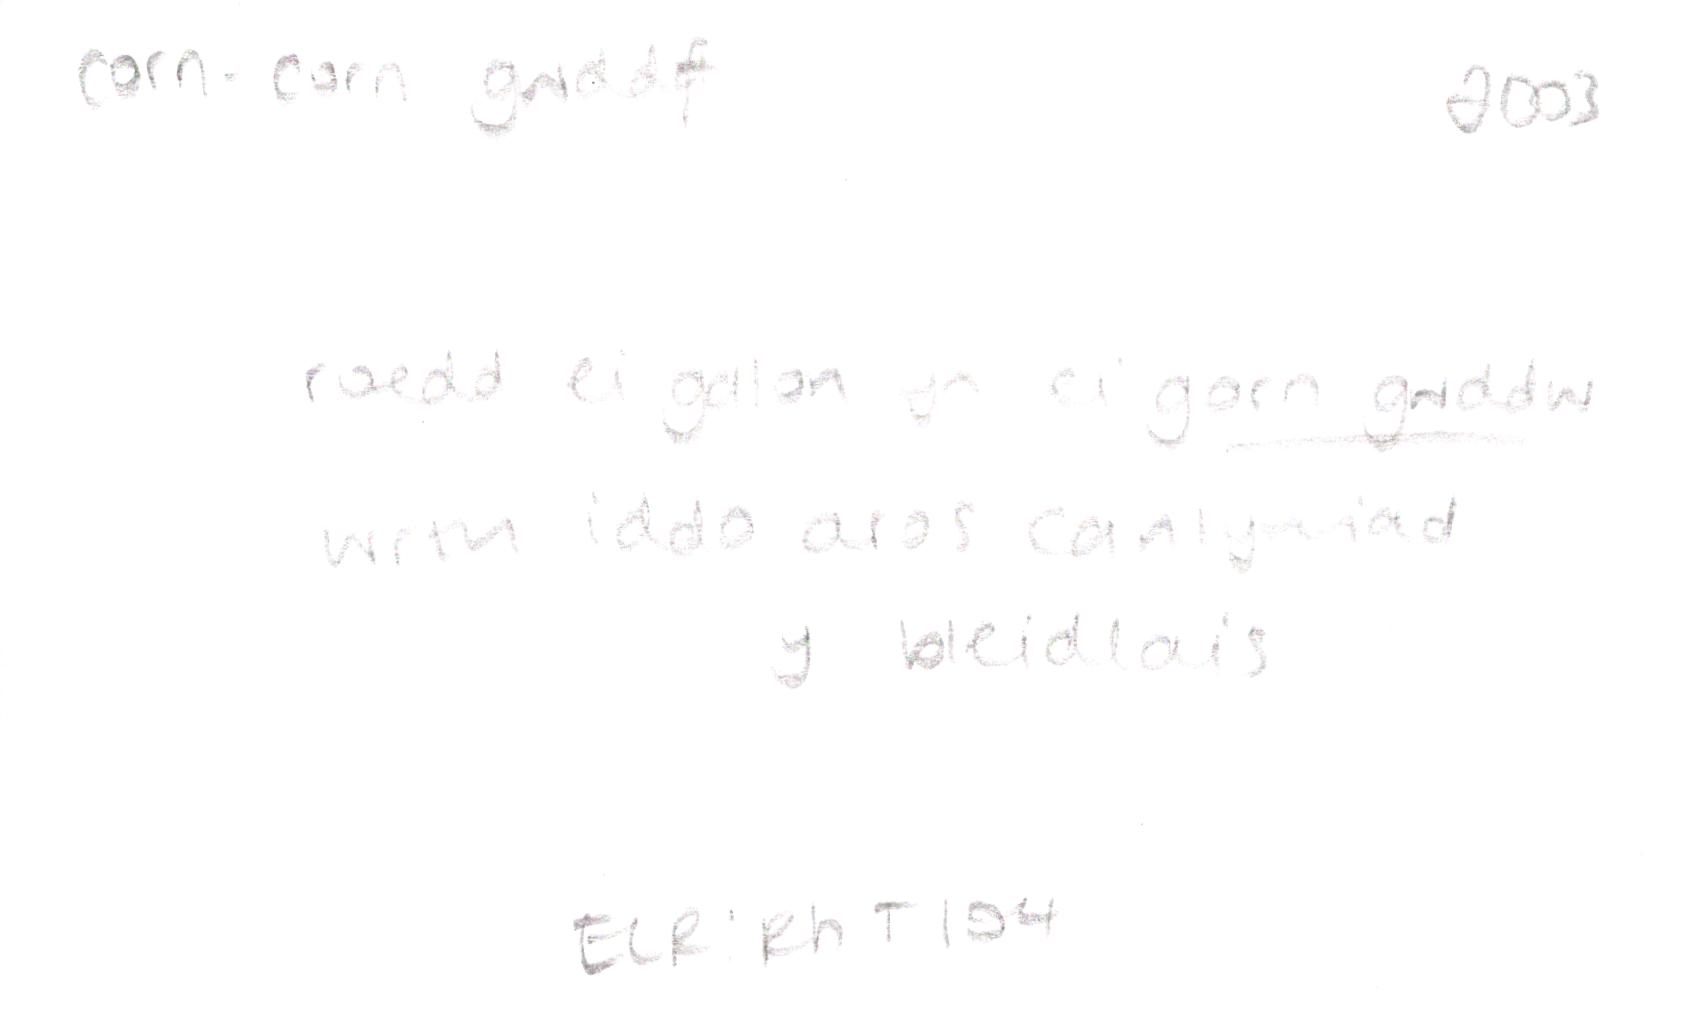 corn - corn gwddf 2003
roedd ei galon yn ei gorn gwddw
wrth iddo aros canlyniad
y bleidlais
ELR: RhT 194